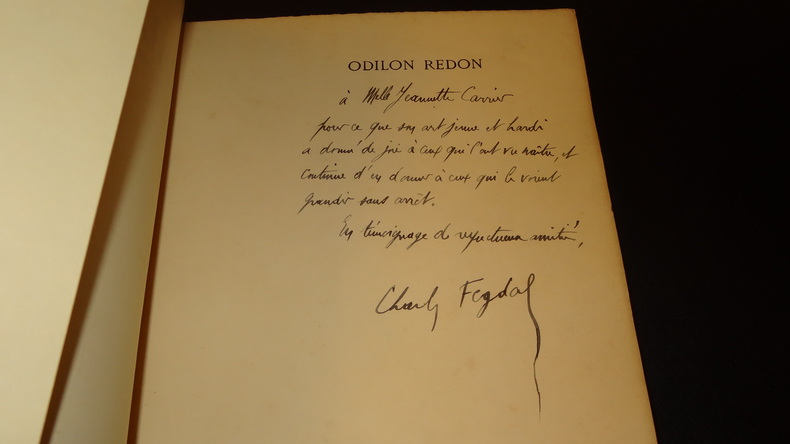 ODILON REDON
à Melle Jeannette Carrier
pour ce que son art jeune et hardi
a donné de joie à ceux qui l'ont vu naître, et
continue d'en donner à ceux qui le voient
grandir sans arrêt.
En témoignage de respectueuse amitié,
Charles Fegdal